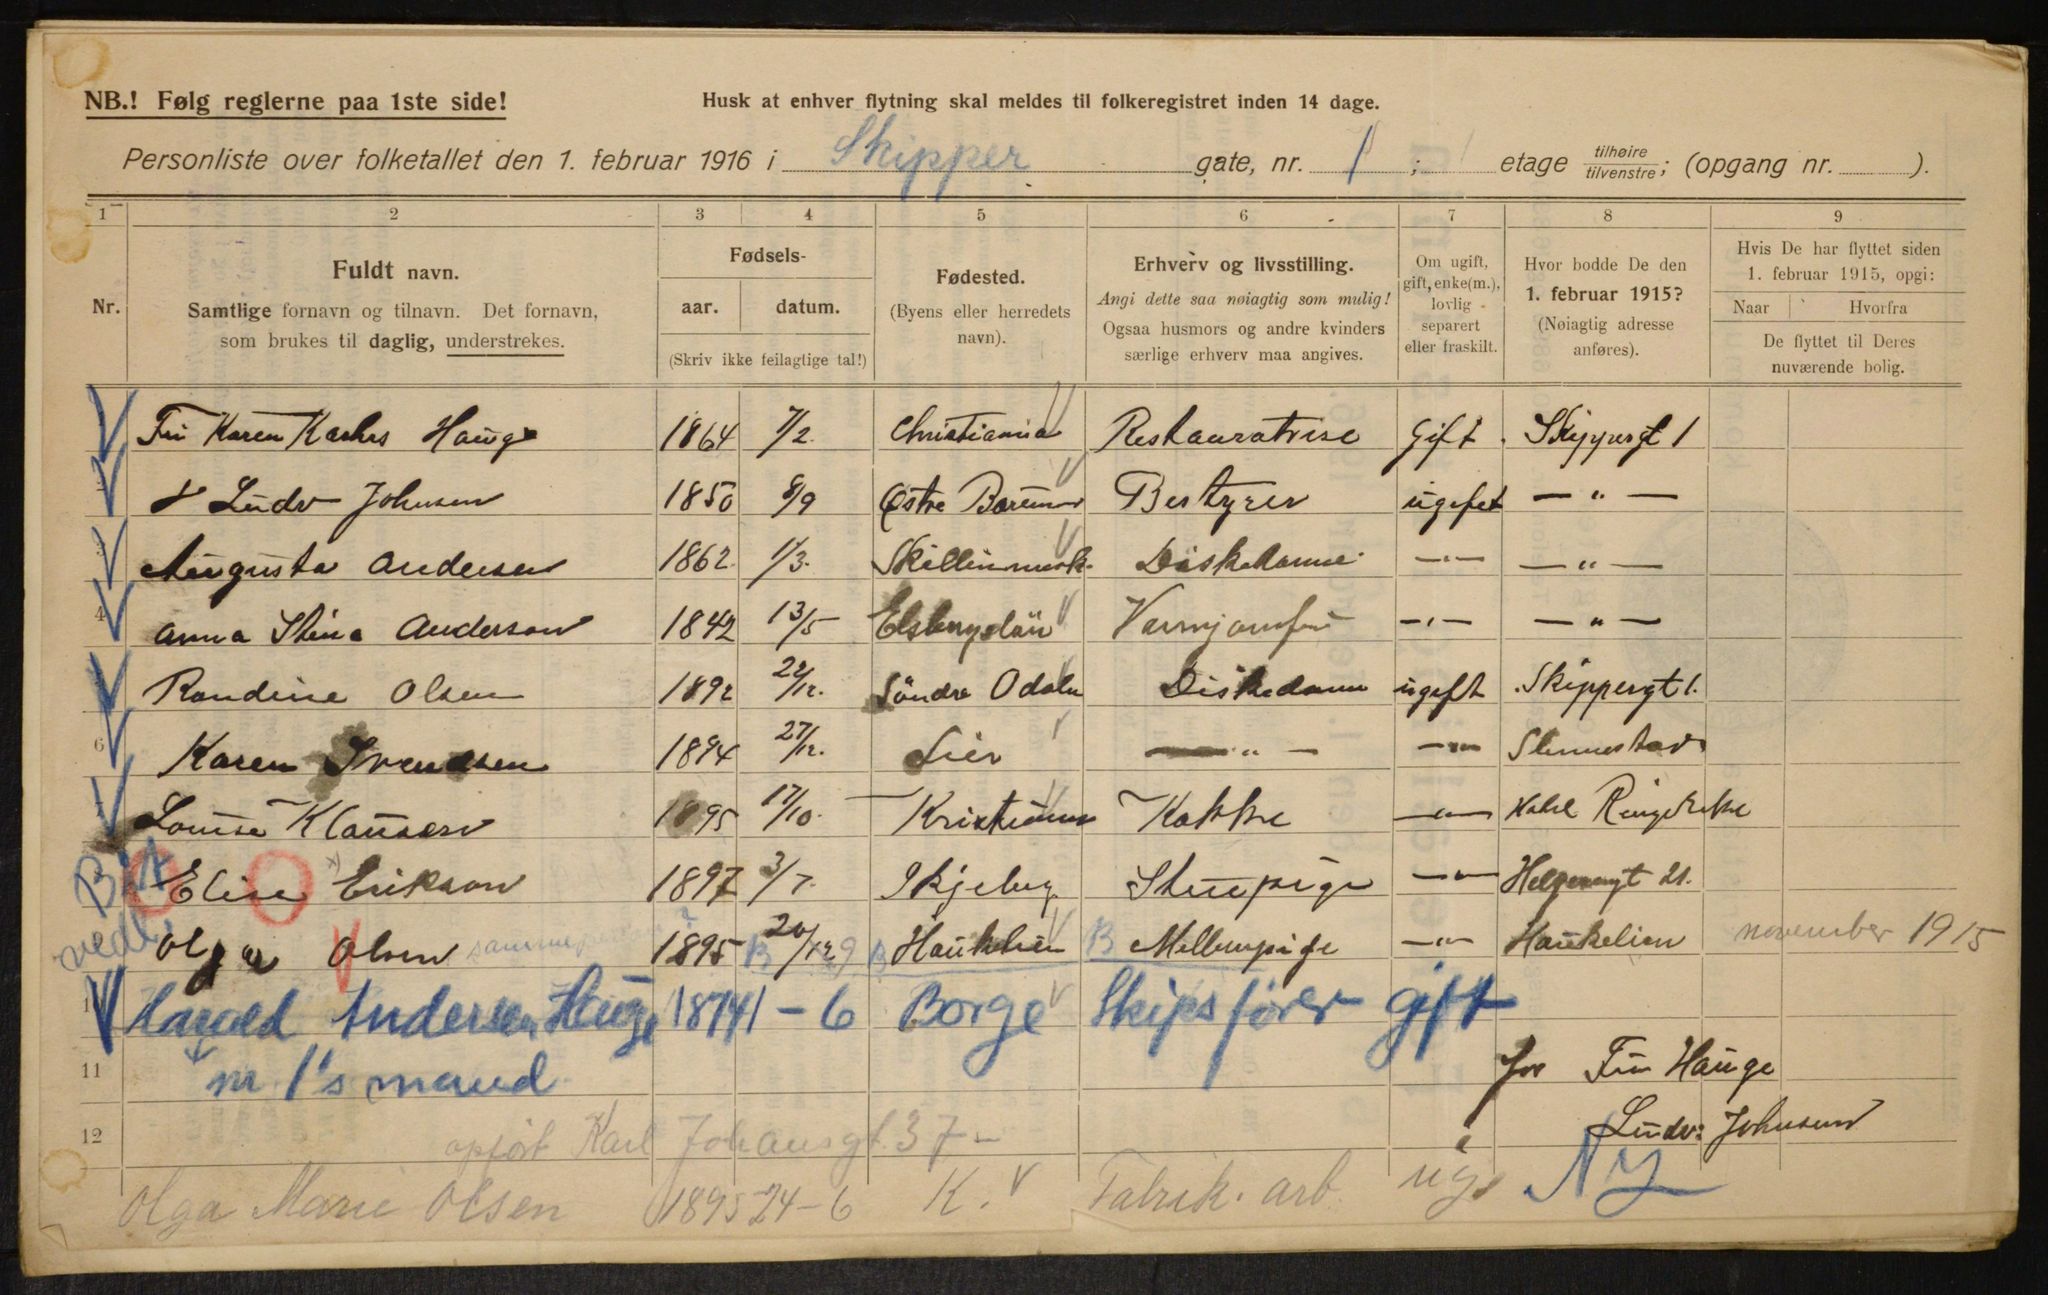 NB.! Følg reglerne paa 1ste side!
Husk at enhver flytning skal meldes til folkeregistret inden 14 dage.
Personliste over folketallet den 1. februar 1916 i Skipper gate, nr. 1 ; etage tilhøire tilvenstre; (opgang nr. ).
1 2 3 4 5 6 7 8 9
Nr.
Fuldt navn.
Samtlige fornavn og tilnavn. Det fornavn,
som brukes til daglig, understrekes.
Fødsels-
aar. datum.
(Skriv ikke feilagtige tal!)
Fødested.
(Byens eller herredets
navn).
Erhverv og livsstilling.
Angi dette saa nøiagtig som mulig!
Ogsaa husmors og andre kvinders
særlige erhverv maa angives.
Om ugift,
gift, enke(m.),
lovlig
separert
eller fraskilt.
Hvor bodde De den
1. februar 1915?
(Nøiagtig adresse
anføres).
Hvis De har flyttet siden
1. februar 1915, opgi:
Naar Hvorfra
De flyttet til Deres
nuværende bolig.
Karen Hauge 1864 7/2. Christiania Restauratrise Gift. Skippergt 1
Ludv Johnsen 1850 8/9 Østre Bestyrer ugift — „ —
3 Augusta Andersen 1862. 1/3. Diskedame — „ —
4 Anna Stina Anderson 1842 13/5 — „ — — „ —
Randine Olsen 1892 22/12. Söndre Odalen Diskedame ugift Skippergt 1.
6 Karen Svendsen 1894 27/12. Lier — „ — — „ —
Louise Klausen 1895 17/10. Kokke — „ — Ringerike
Elise Erikson 1897 3/7. Skjeberg Stuepige — „ — 21.
Olga Olsen samme person 1895 20/12 9 Mellempige — „ — Haukelien november 1915
Harald Andersen Hauge 1874 1-6 Borge Skipsfører gift
11 nr 1's mand
for Fru Hauge
12 opført Karl Johansgt. 37 –
Ludv: Johnsen
Olga Marie Olsen 1895 24-6 K. Fabrik. arb. ug. Ny